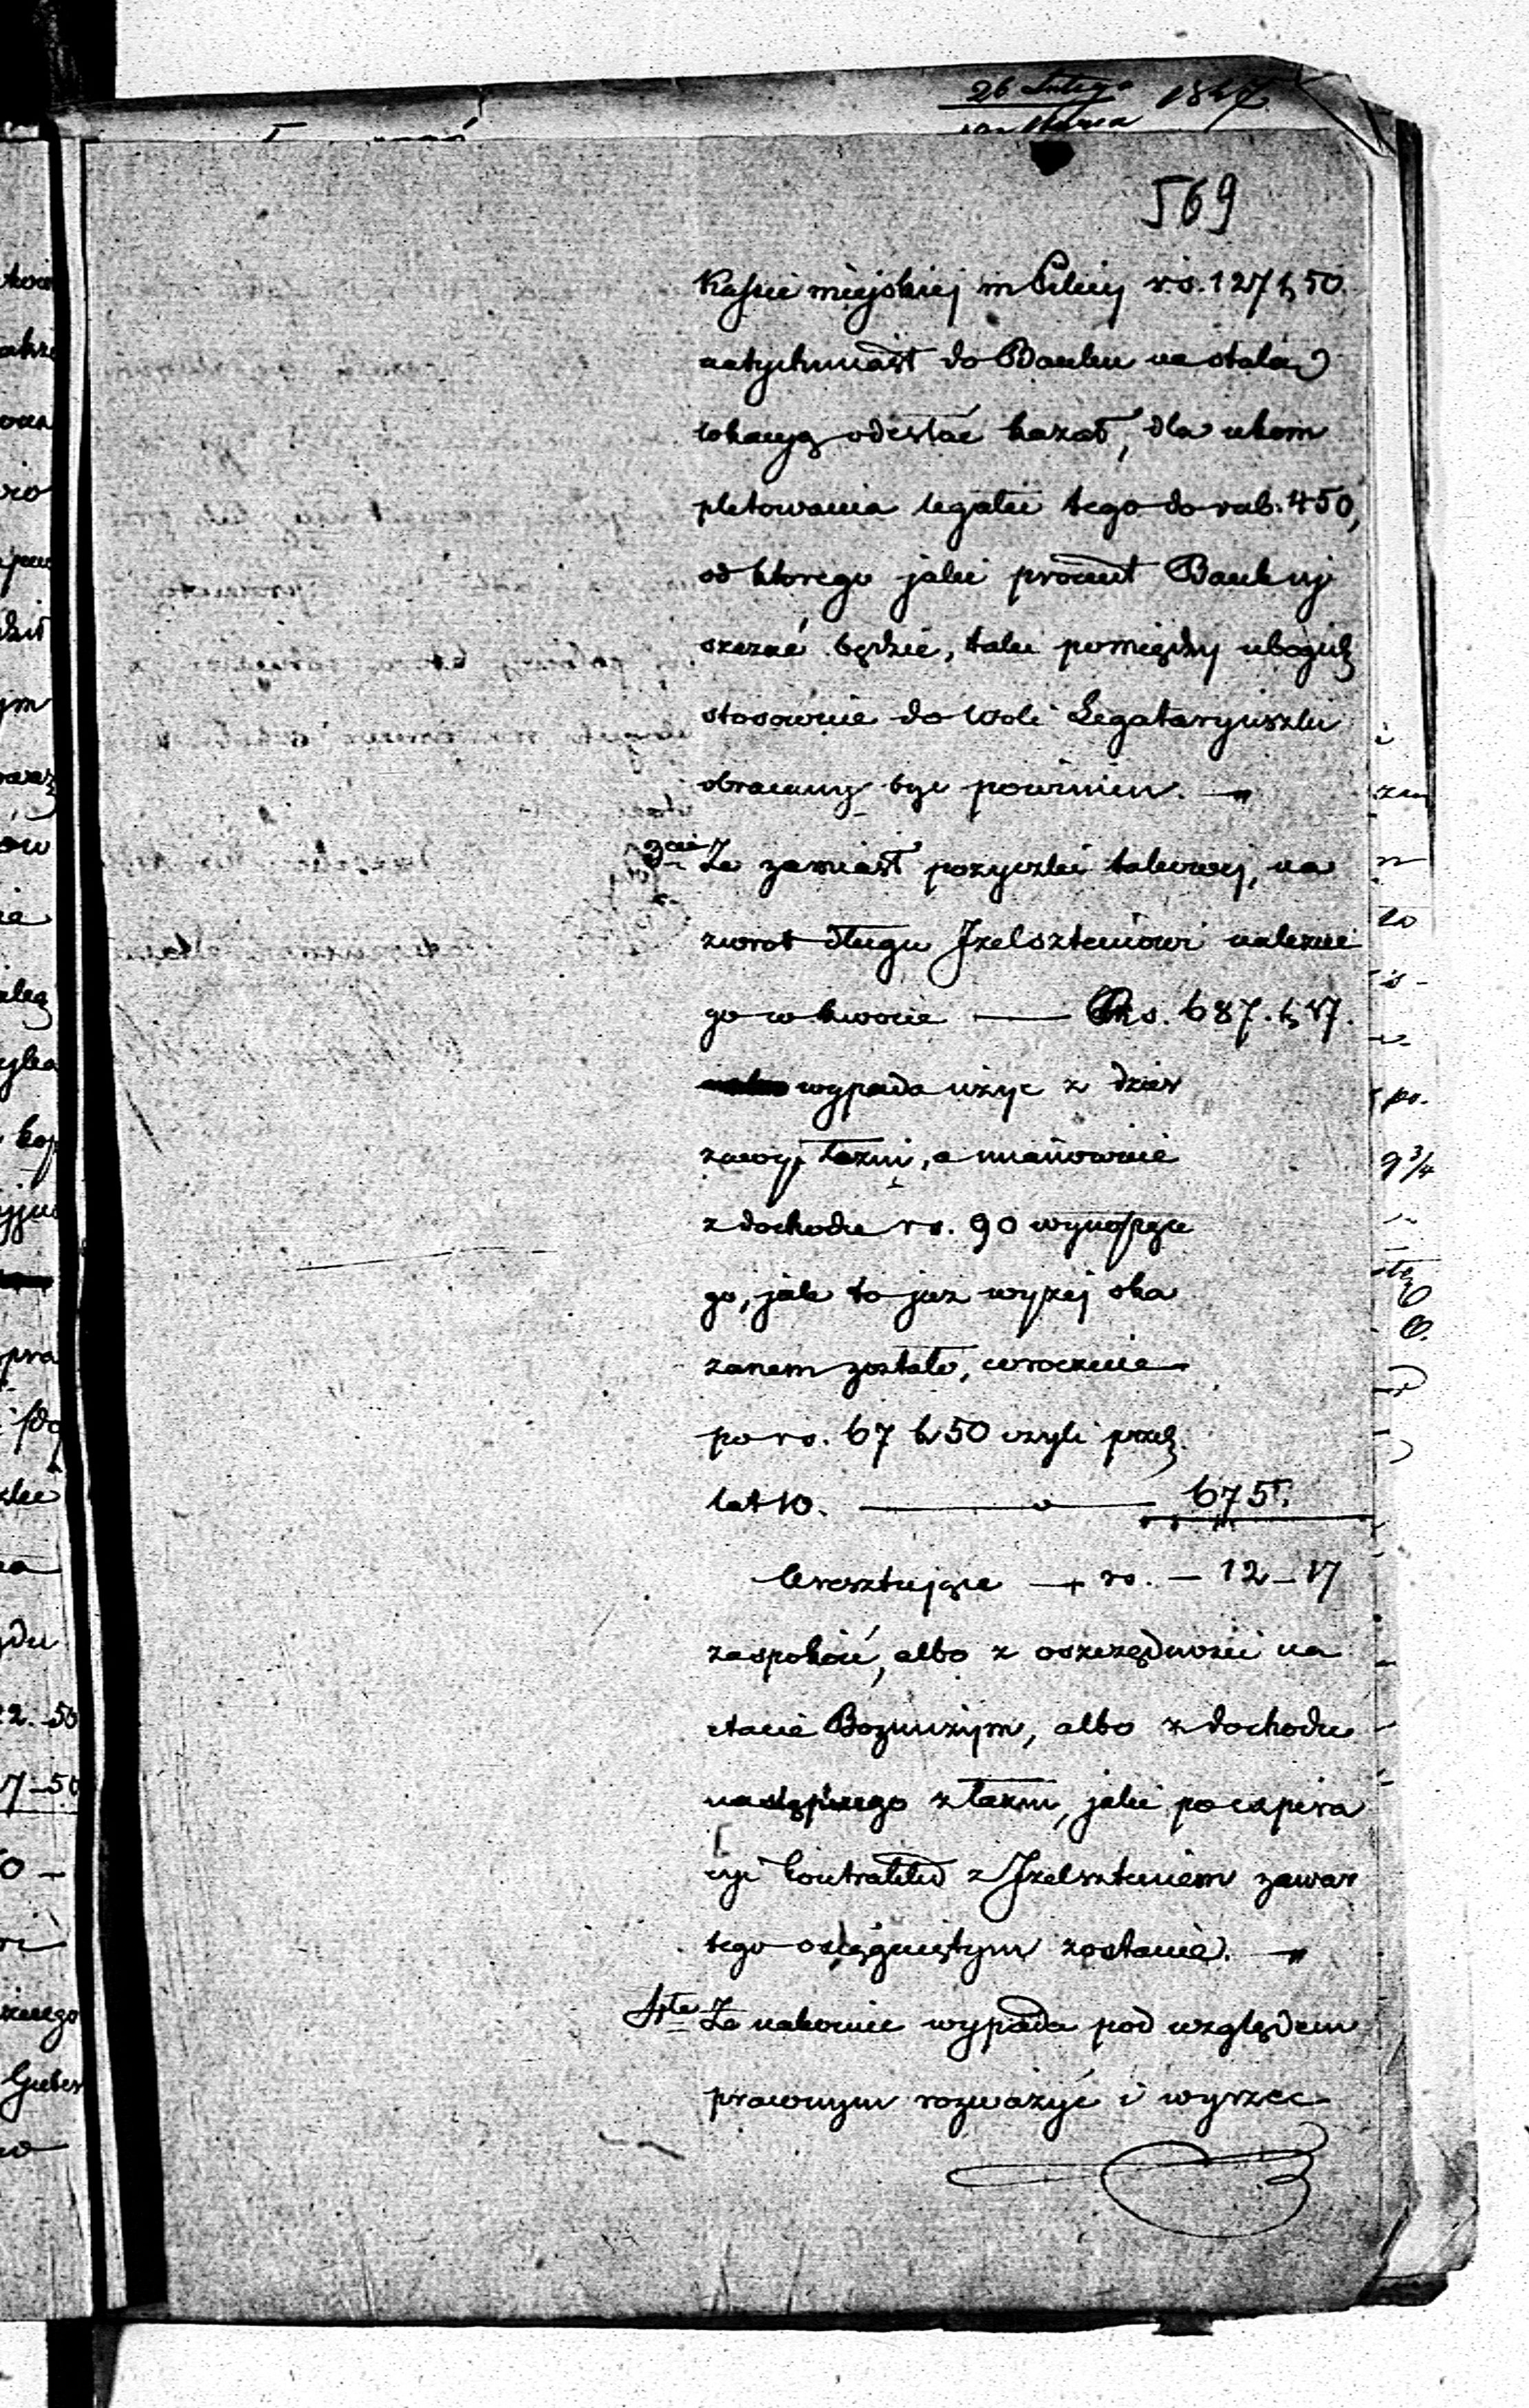 26 Lutego 1847
Marca
569
Kassie miejskiej m Pilicy rs. 127 k 50
natychmiast do Banku na stałą
lokacyą odesłać kazał, dla ukom
pletowania legatu tego do rub. 450,
od którego jaki procent Bank uj
szczać będzie, taki pomiędzy ubogich
stosownie do woli Legataryuszki
obracany być powinien. —
3cie Że zamiast pozyczki takowej, na
zwrot długu Izelszteinowi należne
go w kwocie — Rs. 687. k 17.
wypada użyc z dzier
zawy łazni, a mianowicie
z dochodu rs. 90 wynoszące
go, jak to juz wyzej oka
zanem zostało, corocznie
po rs. 67 k 50 czyli przez
lat 10. — 675.
Aresztujące — rs. — 12 — 17
zaspokoić, albo z oszczędności na
etacie Bożniczym, albo z dochodu
następnego z łazni, jaki po expira
cyi kontraktu z Izelszteinem zawar
tego osiągniętym zostanie. —
4te Że nakoniec wypada pod względem
prawnym rozważyć i wyrzec